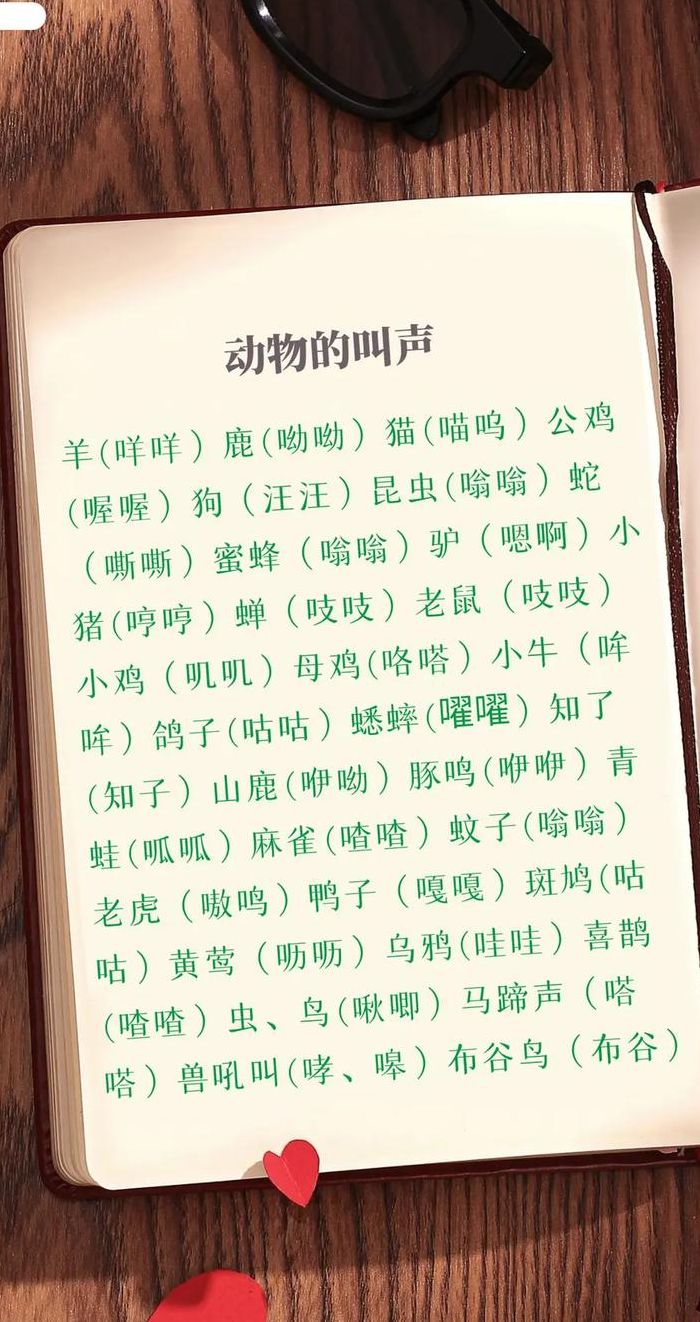 动物的叫声
羊(咩咩）鹿(呦呦）猫(喵呜）公鸡
(喔喔）狗（汪汪）昆虫(嗡嗡）蛇
（嘶嘶）蜜蜂（嗡嗡）驴（嗯啊）小
猪(哼哼）蝉（吱吱）老鼠（吱吱）
小鸡（叽叽）母鸡(咯嗒）小牛（哞
哞）鸽子(咕咕）蟋蟀(嚁嚁）知了
(知子）山鹿(咿呦）豚鸣(咿咿）青
蛙(呱呱）麻雀(喳喳）蚊子(嗡嗡）
老虎（嗷鸣）鸭子（嘎嘎）斑鸠(咕
咕）黄莺（呖呖）乌鸦(哇哇）喜鹊
(喳喳）虫、鸟(啾唧）马蹄声（嗒
嗒）兽吼叫(哮、嗥）布谷鸟（布谷）